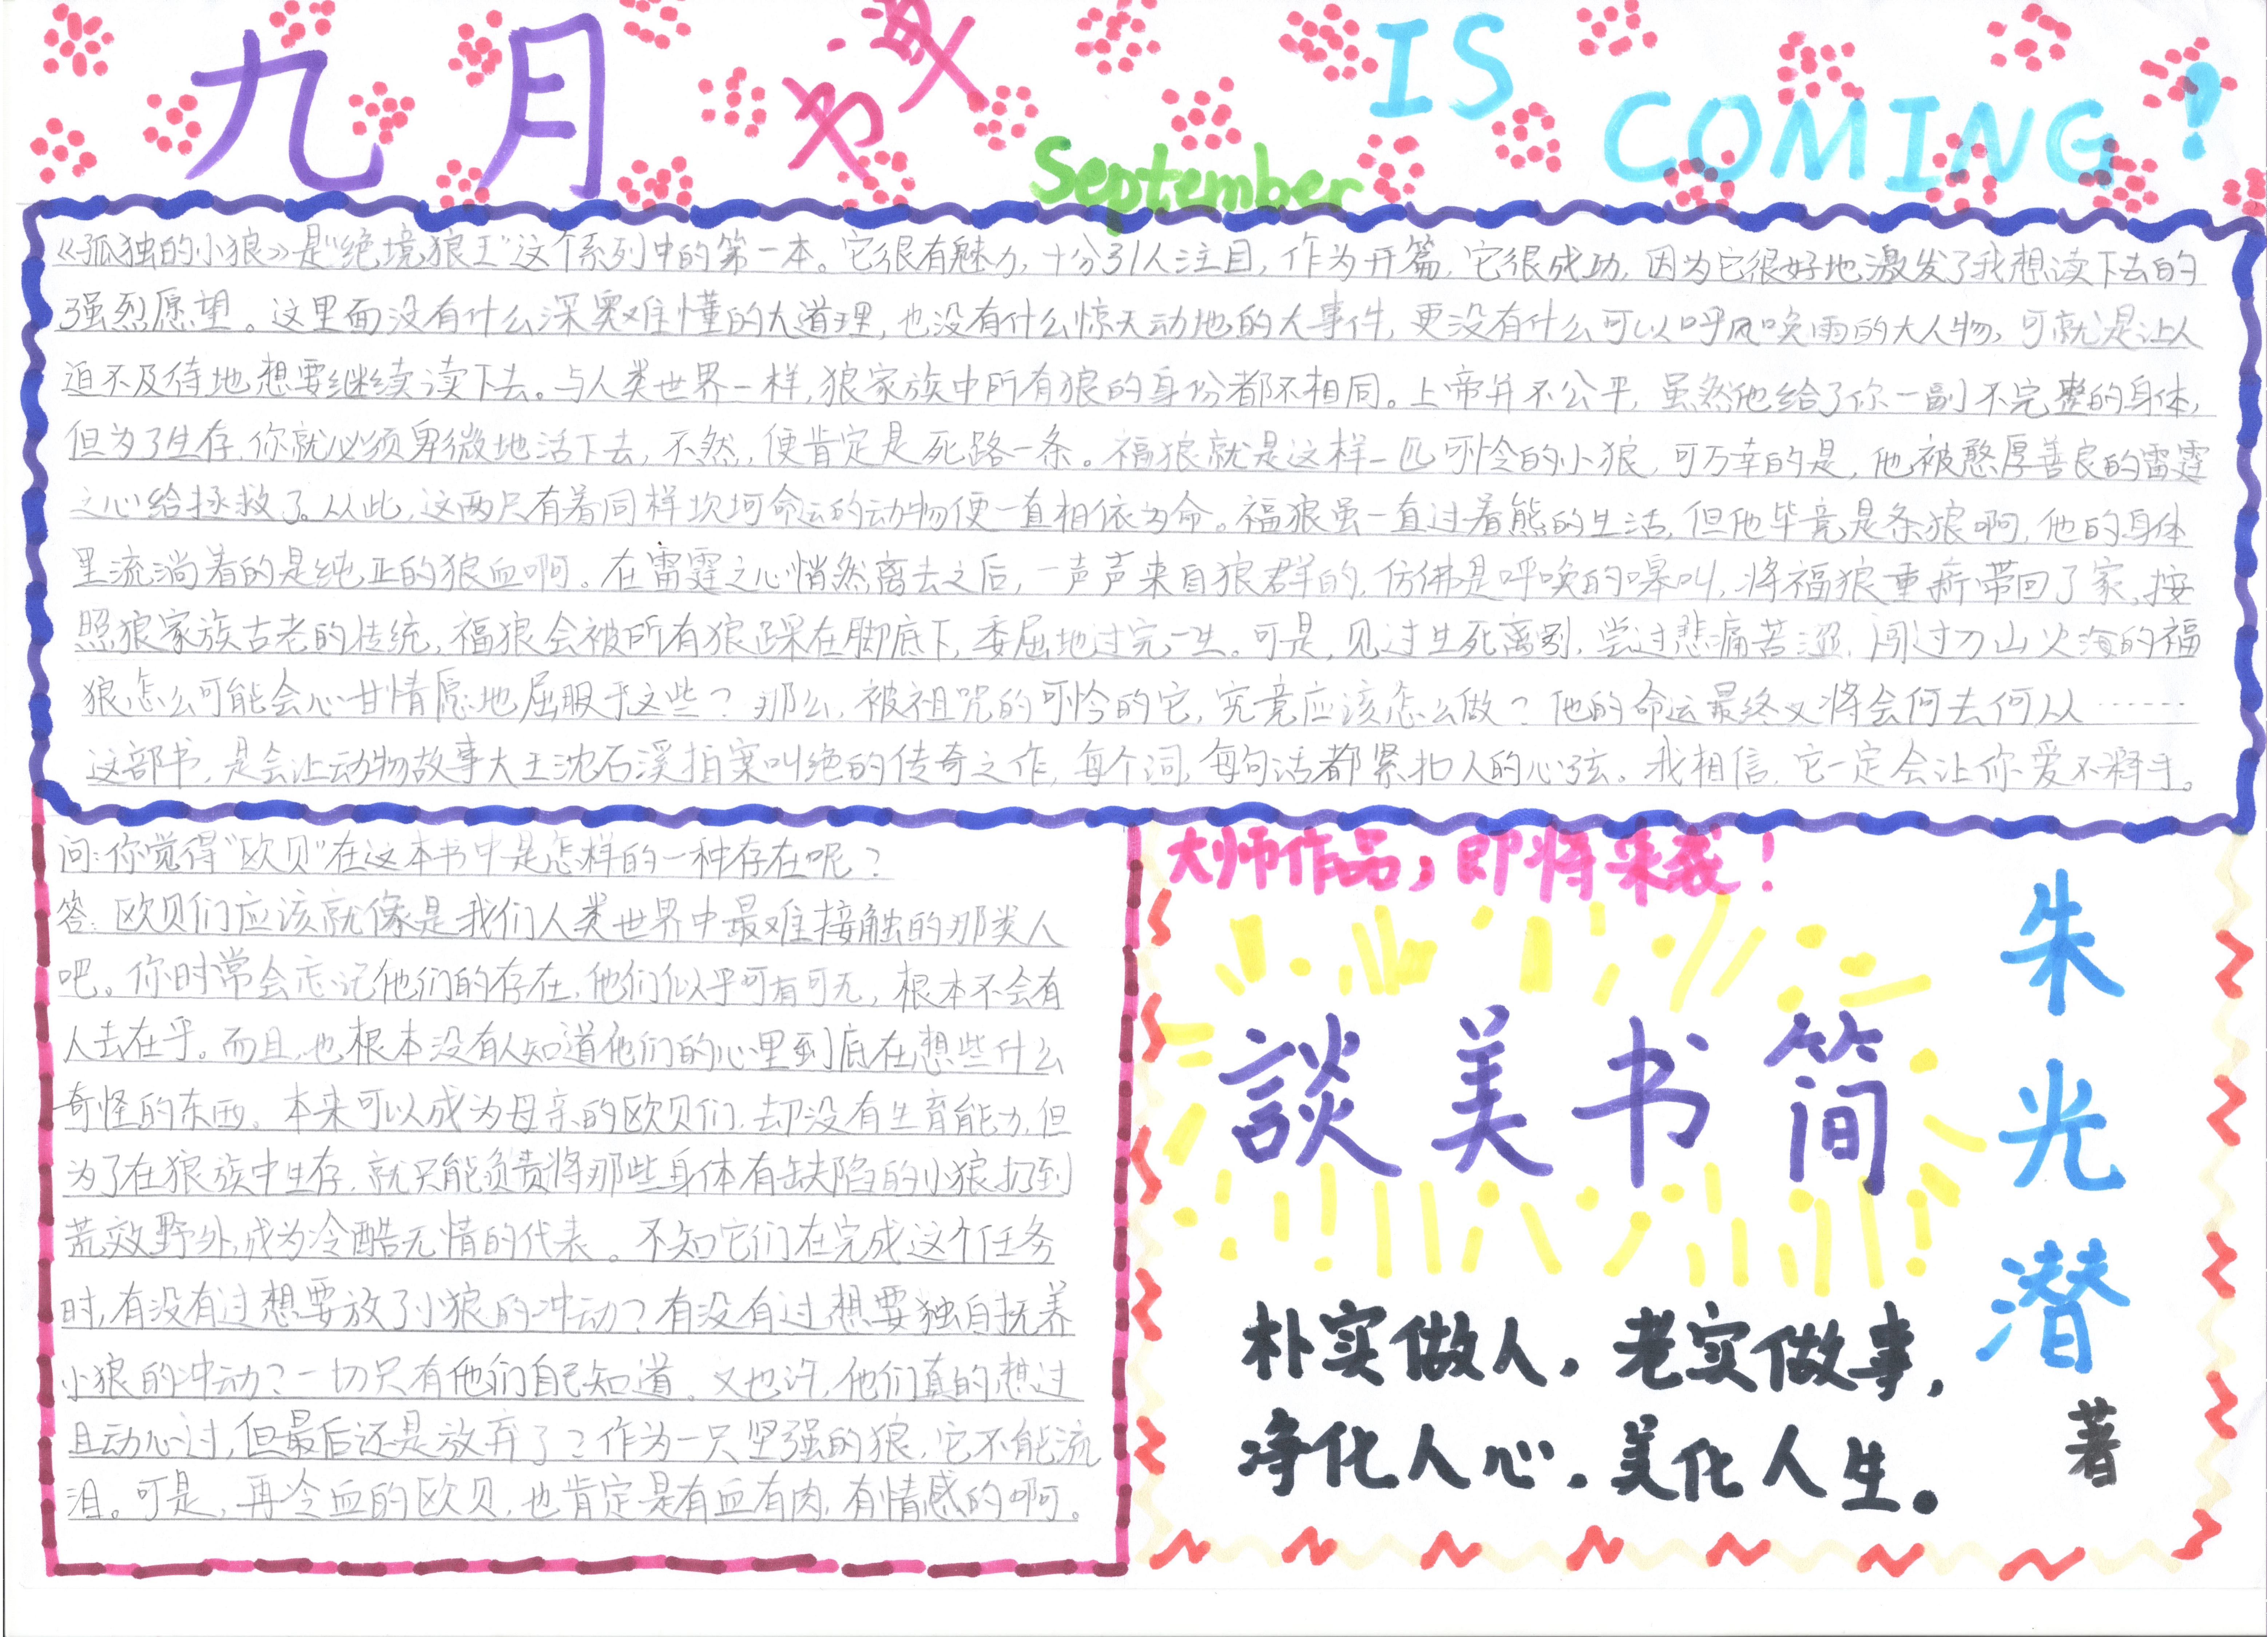 九月
书
September
IS
COMING!
《孤独的小狼》是"绝境狼王"这个系列中的第一本。它很有魅力,十分引人注目,作为开篇,它很成功,因为它很好地激发了我想读下去的
强烈愿望。这里面没有什么深奥难懂的大道理,也没有什么惊天动地的大事件,更没有什么可以呼风唤雨的大人物,可就是让人
迫不及待地想要继续读下去。与人类世界一样,狼家族中所有狼的身份都不相同。上帝并不公平,虽然他给了你一副不完整的身体,
但为了生存,你就必须卑微地活下去,不然,便肯定是死路一条。福狼就是这样一匹可怜的小狼,可万幸的是,他被憨厚善良的雷霆
之心给拯救了。从此,这两只有着同样坎坷命运的动物便一直相依为命。福狼虽一直过着熊的生活,但他毕竟是条狼啊,他的身体
里流淌着的是纯正的狼血啊。在雷霆之心悄然离去之后,一声声来自狼群的,仿佛是呼唤的嗥叫,将福狼重新带回了家,按
照狼家族古老的传统,福狼会被所有狼踩在脚底下,委屈地过完一生。可是,见过生死离别,尝过悲痛苦涩,闯过刀山火海的福
狼怎么可能会心甘情愿地屈服于这些?那么,被祖咒的可怜的它,究竟应该怎么做?他的命运最终又将会何去何从……
这部书,是会让动物故事大王沈石溪拍案叫绝的传奇之作,每个词,每句话都紧扣人的心弦。我相信,它一定会让你爱不释手。
问:你觉得"欧贝"在这本书中是怎样的一种存在呢?
答:欧贝们应该就像是我们人类世界中最难接触的那类人
吧。你时常会忘记他们的存在,他们似乎可有可无,根本不会有
人去在乎。而且,也根本没有人知道他们的心里到底在想些什么
奇怪的东西。本来可以成为母亲的欧贝们,却没有生育能力,但
为了在狼族中生存,就只能负责将那些身体有缺陷的小狼扔到
荒效野外,成为冷酷无情的代表。不知它们在完成这个任务
时,有没有过想要放了小狼的冲动?有没有过想要独自抚养
小狼的冲动?一切只有他们自己知道。又也许,他们真的想过
且动心过,但最后还是放弃了?作为一只坚强的狼,它不能流
泪。可是,再冷血的欧贝,也肯定是有血有肉,有情感的啊。
大师作品,即将来袭!
談美书简
朱光潜
著
朴实做人,老实做事,
净化人心,美化人生。